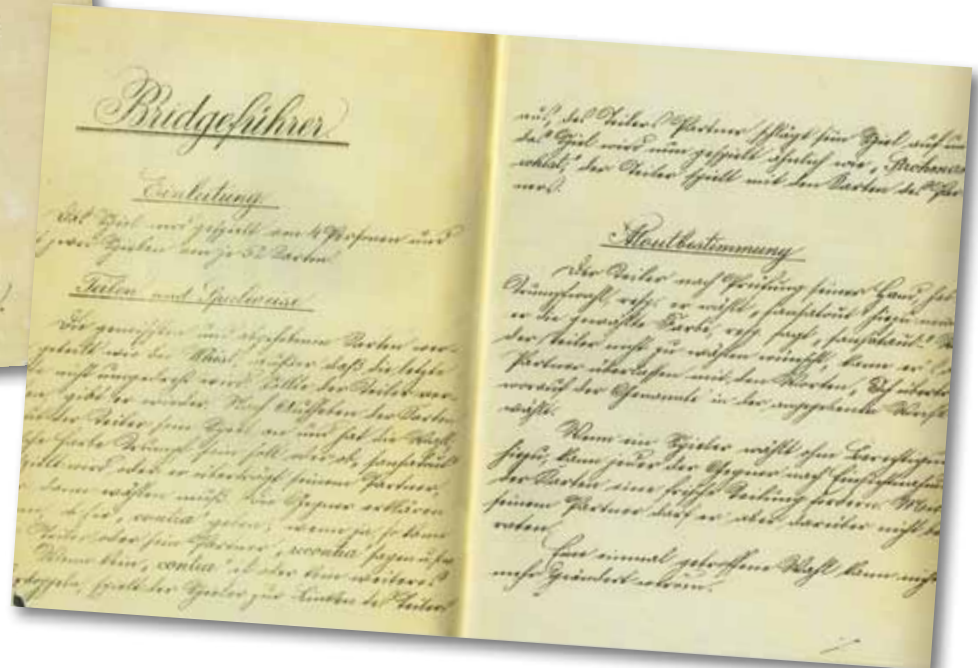 Bridgeführer
Einleitung
Das Spiel wird gespielt von 4 Personen und
zwei Spielen von je 52 Karten.
Teilen und Spielweise
Die gemischten und abgehobenen Karten wer-
geteilt wie bei Whist, außer daß die letzte
nicht umgedreht wird.
gibt er wieder. Nach Aufheben der Karten
der Teiler sein Spiel an und hat die Wahl,
Farbe Trumpf sein soll oder ob "sansatout"
gespielt wird oder er überträgt seinem Partner,
dann wählen muß. Die Gegner erklären
ob sie "contra" geben, wenn ja, so kann
Teiler oder sein Partner "recontra" sagen
Wenn kein "contra" ist oder kein weiteres
doppeln, spielt der Spieler zur Linken des Teilers
aus, des Teilers Partner schlägt sein Spiel auf
das Spiel wird nun gespielt ähnlich wie "Strohmann
whist", der Teiler spielt mit den Karten des Par
ners.
Atoutbestimmung
Der Teiler nach Prüfung seiner Hand, hat
Trumpfwahl, resp. er wählt "sansatout"
er die gewählte Farbe, resp. sagt "sansatout".
der Teiler nicht zu wählen wünscht, kann er
Partner überlassen mit den Worten, "Ich
worauf der Genannte in der angegebenen Weise
wählt.
Wenn ein Spieler wählt ohne Berechtigung
hiezu, kann jeder der Gegner nach Einsichtnahme
der Karten eine frische Teilung fordern. Mit
seinem Partner darf er aber darüber nicht be
raten.
Eine einmal getroffene Wahl kann nicht
mehr geändert werden.